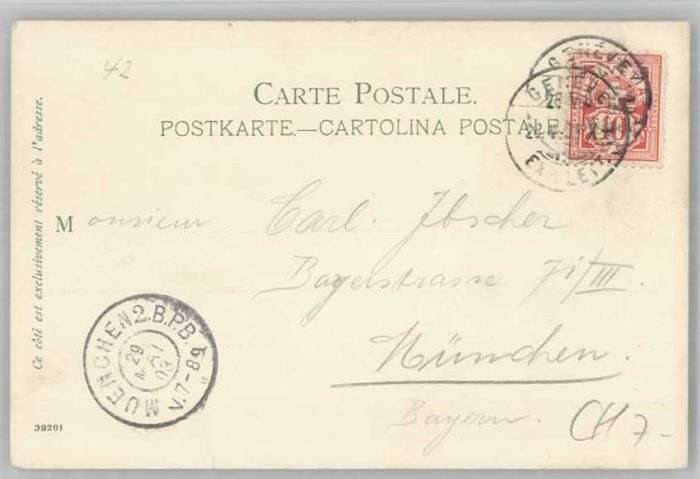 42
CARTE POSTALE.
POSTKARTE.—CARTOLINA POSTALE
10
GENÈVE
EXP. LETT.
Ce côté est exclusivement réservé à l'adresse.
Monsieur Carl. Ibscher
Bayerstrasse 71/III
München.
Bayern.
MUENCHEN 2.B.P.B.
29
MAI
03
V.7-8
CH 7-
39201